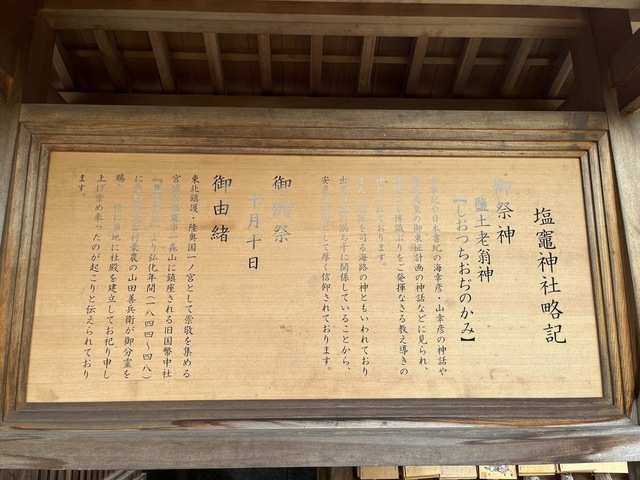 塩竈神社略記
御祭神
鹽土老翁神
【しおつちおぢのかみ】
日本書紀の海幸彦・山幸彦の神話や
御東征計画の神話などに見られ、
博識ぶりをご発揮なさる教え導きの
神 ております。
また、 を司る海路の神ともいわれており
満ち干に関係していることから、
安産 として厚く信仰されております。
御例祭
十月十日
御由緒
東北鎮護・陸奥国一ノ宮として崇敬を集める
宮城県塩竈市一森山に鎮座される旧国幣中社
より弘化年間(一八四四〜四八)
に 村豪農の山田善兵衛が御分霊を
賜り、 に当地に社殿を建立してお祀り申し
上げ崇め奉ったのが起こりと伝えられており
ます。